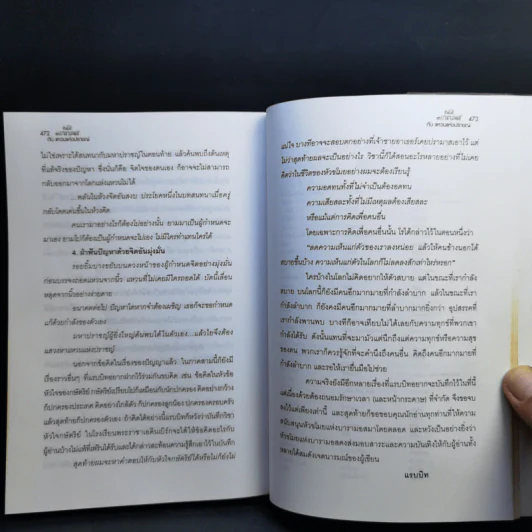 472
กับ แหวนแห่งปราชญ์
ไม่ใช่เพราะได้สนทนากับมหาปราชญ์ในตอนท้าย แล้วค้นพบถึงต้นเหตุ
ที่แท้จริงของปัญหา ซึ่งนั่นก็คือ จิตใจของตนเอง ก็อาจจะไม่สามารถ
กลับออกมาจากโลกแห่งแหวนได้
กลับโดดเด่นขึ้นในห้วงคิด
คนเราอย่างไรก็ต้องไปอย่างนั้น ยามมาเป็นผู้กำหนดจะ
มาเอง ยามไปก็ต้องเป็นผู้กำหนดจะไปเอง ไม่มีใครทำแทนใครได้
4. ฝ่าฟันปัญหาด้วยจิตอันมุ่งมั่น
รอยยิ้มบางเยือนบนดวงหน้าของผู้กำหนดจิตอย่างมุ่งมั่น
หลุดจากนิ้วอย่างง่ายดาย
แก้ด้วยกำลังของตัวเอง
มหาปราชญ์ผู้ยิ่งใหญ่ค้นพบได้ในตัวเอง...แล้วไยจึงต้อง
แสวงหาแหวนแห่งปราชญ์
นอกจากข้อคิดในเรื่องของปัญญาแล้ว ในภาคสามนี้ก็ยังมี
เรื่องราวอื่นๆ ที่แรบบิทอยากฝากไว้ร่วมกันขบคิด เช่น ข้อคิดในหัวข้อ
หัวใจของกษัตริย์ กษัตริย์เปรียบไปก็เหมือนกับนักปกครอง คิดอย่างกว้าง
ก็ปกครองประเทศ คิดอย่างใกล้ตัว ก็ปกครองลูกน้อง ปกครองครอบครัว
แล้วสุดท้ายก็ปกครองตัวเอง
สุดท้ายผมจะหาคำตอบให้กับหัวใจกษัตริย์ได้หรือไม่ก็ยังไม่
473
กับ แหวนแห่งปราชญ์
แน่ใจ บางทีอาจจะสอบตกอย่างที่เจ้าชายอาเธอร์เคยปรามาสเอาไว้ แต่
ไม่ว่าสุดท้ายผลจะเป็นอย่างไร วิชานี้ก็ได้สอนอะไรหลายอย่างที่ไม่เคย
คิดว่าในชีวิตของหัวขโมยอย่างผมจะต้องเรียนรู้
ความอดทนทั้งที่ไม่จำเป็นต้องอดทน
ความเสียสละทั้งที่ไม่มีเหตุผลต้องเสียสละ
หรือแม้แต่การคิดเพื่อคนอื่น
โดยเฉพาะการคิดเพื่อคนอื่นนั้น โรได้กล่าวไว้ในตอนหนึ่งว่า
"ลดความเห็นแก่ตัวของเราลงหน่อย แล้วไห้คนข้างนอกได้
สบายขึ้นบ้าง ความเห็นแก่ตัวในโลกก็ไม่ลดลงสักเท่าไหร่หรอก"
ใครบ้างในโลกไม่คิดอยากให้ตัวสบาย แต่ในขณะที่เรากำลัง
สบาย บนโลกนี้ก็ยังมีคนอีกมากมายที่กำลังลำบาก แล้วในขณะที่เรา
กำลังลำบาก ก็ยังคงมีคนอีกมากมายที่ลำบากมากยิ่งกว่า อุปสรรคที่
เรากำลังพานพบ บางทีก็อาจเทียบไม่ได้เลยกับความทุกข์ที่พวกเขา
กำลังได้รับ ดังนั้นแทนที่จะมามัวแต่นึกถึงแค่ความทุกข์หรือความสุข
ของตน พวกเราก็ควรรู้จักที่จะคำนึงถึงคนอื่น คิดถึงคนอีกมากมายที่
กำลังลำบาก และรอให้เรายื่นมือไปช่วย
ความจริงยังมีอีกหลายเรื่องที่แรบบิทอยากจะบันทึกไว้ในที่นี้
แต่เนื่องด้วยต้องถนอมรักษาเวลา (และหน้ากระดาษ) ที่จำกัด จึงขอจบ
ลงไว้แต่เพียงเท่านี้ และสุดท้ายก็ขอขอบคุณนักอ่านทุกท่านที่ให้ความ
สนับสนุนหัวขโมยแห่งบารามอสมาโดยตลอด และหวังเป็นอย่างยิ่งว่า
หัวขโมยแห่งบารามอสคงส่งมอบสาระและความบันเทิงให้กับผู้อ่านทั้ง
หลายได้สมดังเจตนารมณ์ของผู้เขียน
แรบบิท